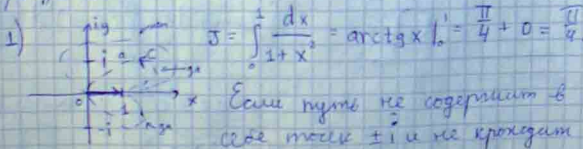 1) J = ∫₀¹ dx/(1+x²) = arctg x |₀¹ = π/4 + 0 = π/4
iy
i
0 1 x
-i
Если путь не содержит в
себе точек ± i и не проходит